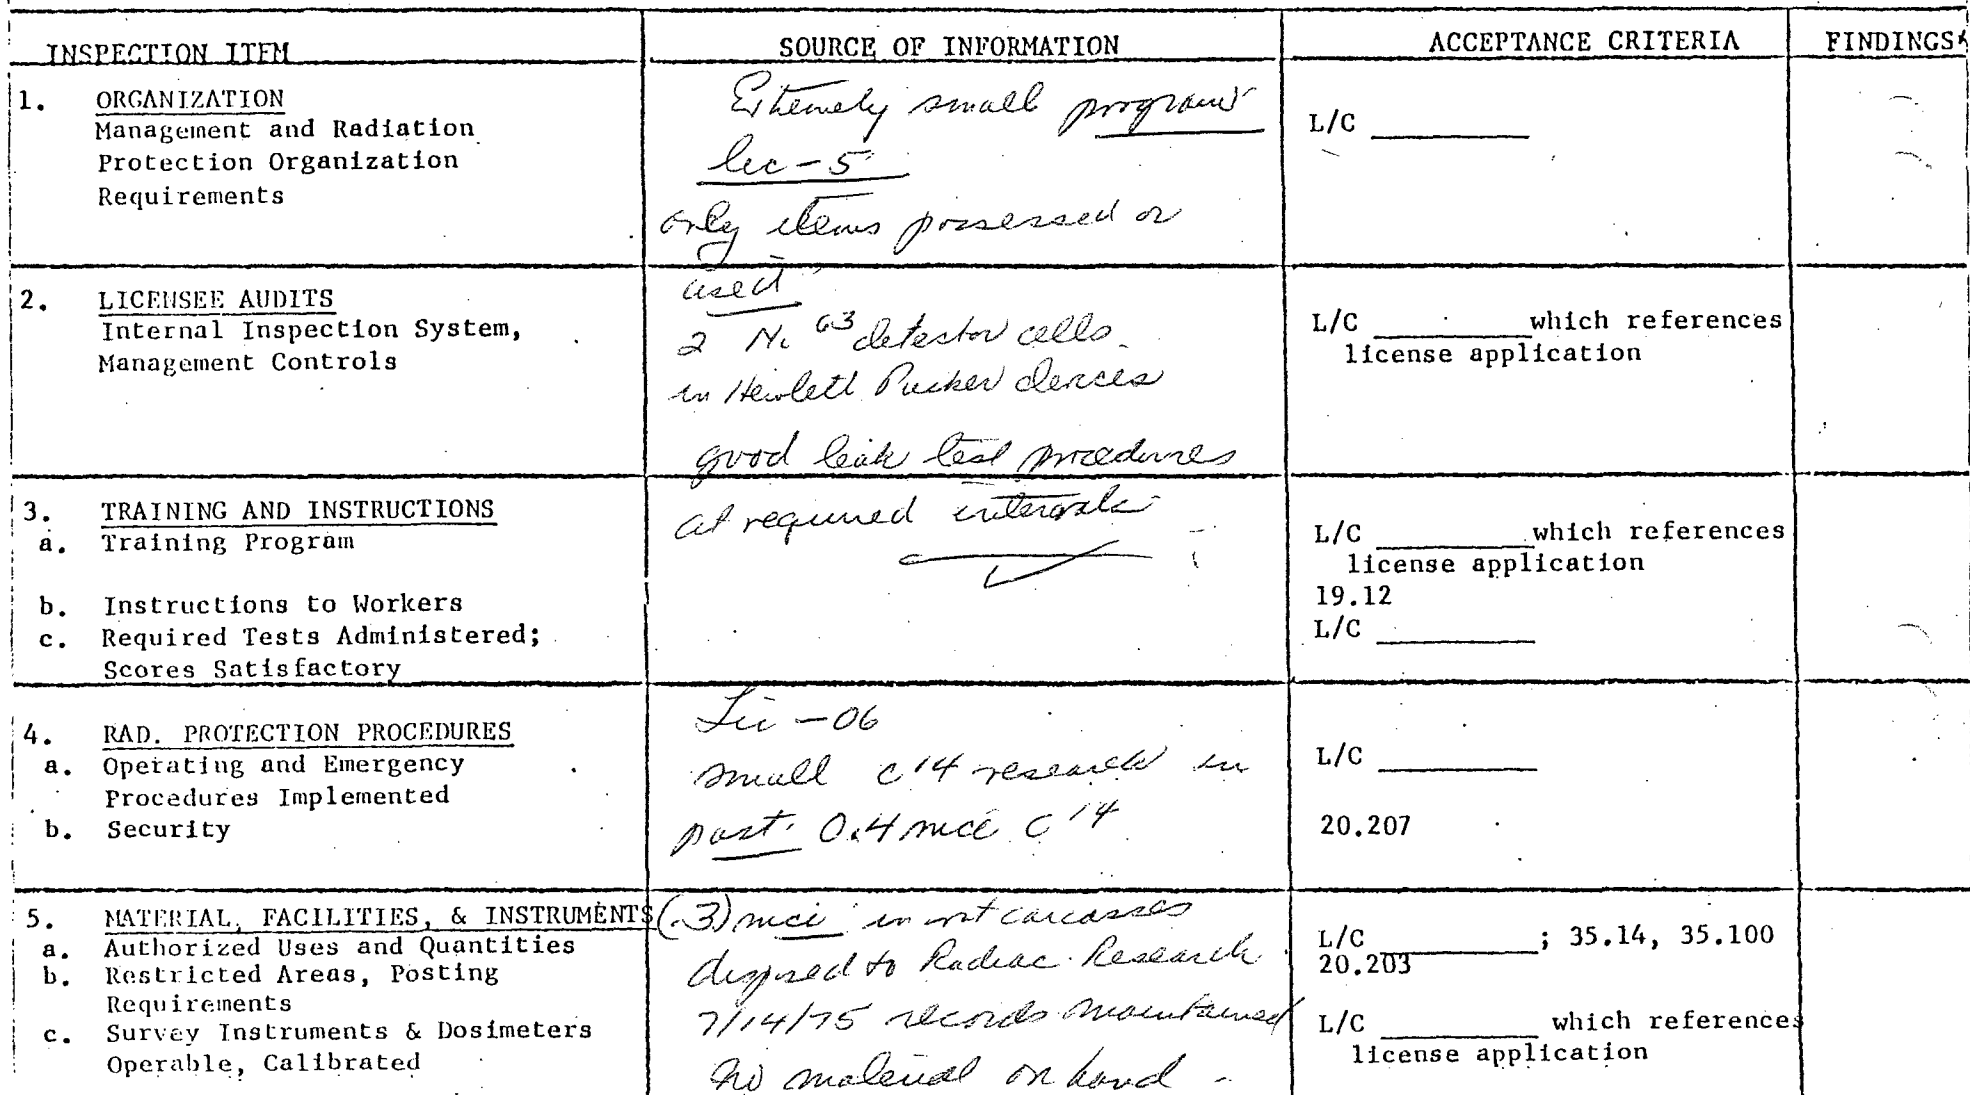 INSPECTION ITEM
SOURCE OF INFORMATION
ACCEPTANCE CRITERIA
FINDINGS*
1. ORGANIZATION
Management and Radiation
Protection Organization
Requirements
Extremely small program
lic-5
only items possessed or
L/C ________
2. LICENSEE AUDITS
Internal Inspection System,
Management Controls
used
2 Ni 63 detector cells
in Hewlett Packer devices
good leak test procedures
L/C ________ which references
license application
3. TRAINING AND INSTRUCTIONS
a. Training Program
b. Instructions to Workers
c. Required Tests Administered;
Scores Satisfactory
at required intervals
L/C ________ which references
license application
19.12
L/C ________
4. RAD. PROTECTION PROCEDURES
a. Operating and Emergency
Procedures Implemented
b. Security
Lic -06
small c14 research in
past. 0.4 mci C14
L/C ________
20.207
5. MATERIAL, FACILITIES, & INSTRUMENTS
a. Authorized Uses and Quantities
b. Restricted Areas, Posting
Requirements
c. Survey Instruments & Dosimeters
Operable, Calibrated
(.3) mci in rat carcasses
disposed to Radiac Research
7/14/75 records maintained
No material on hand -
L/C ________; 35.14, 35.100
20.203
L/C ________ which references
license application